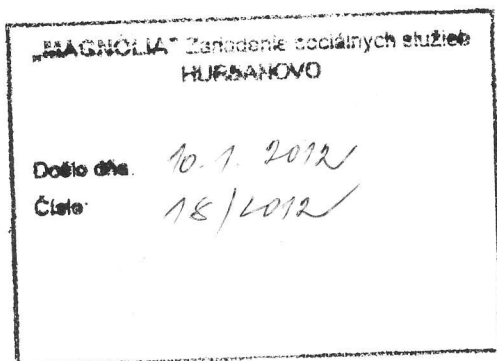 „MAGNÓLIA" Zariadenie sociálnych služieb
HURBANOVO
Došlo dňa. 10. 1. 2012
Číslo: 18/2012